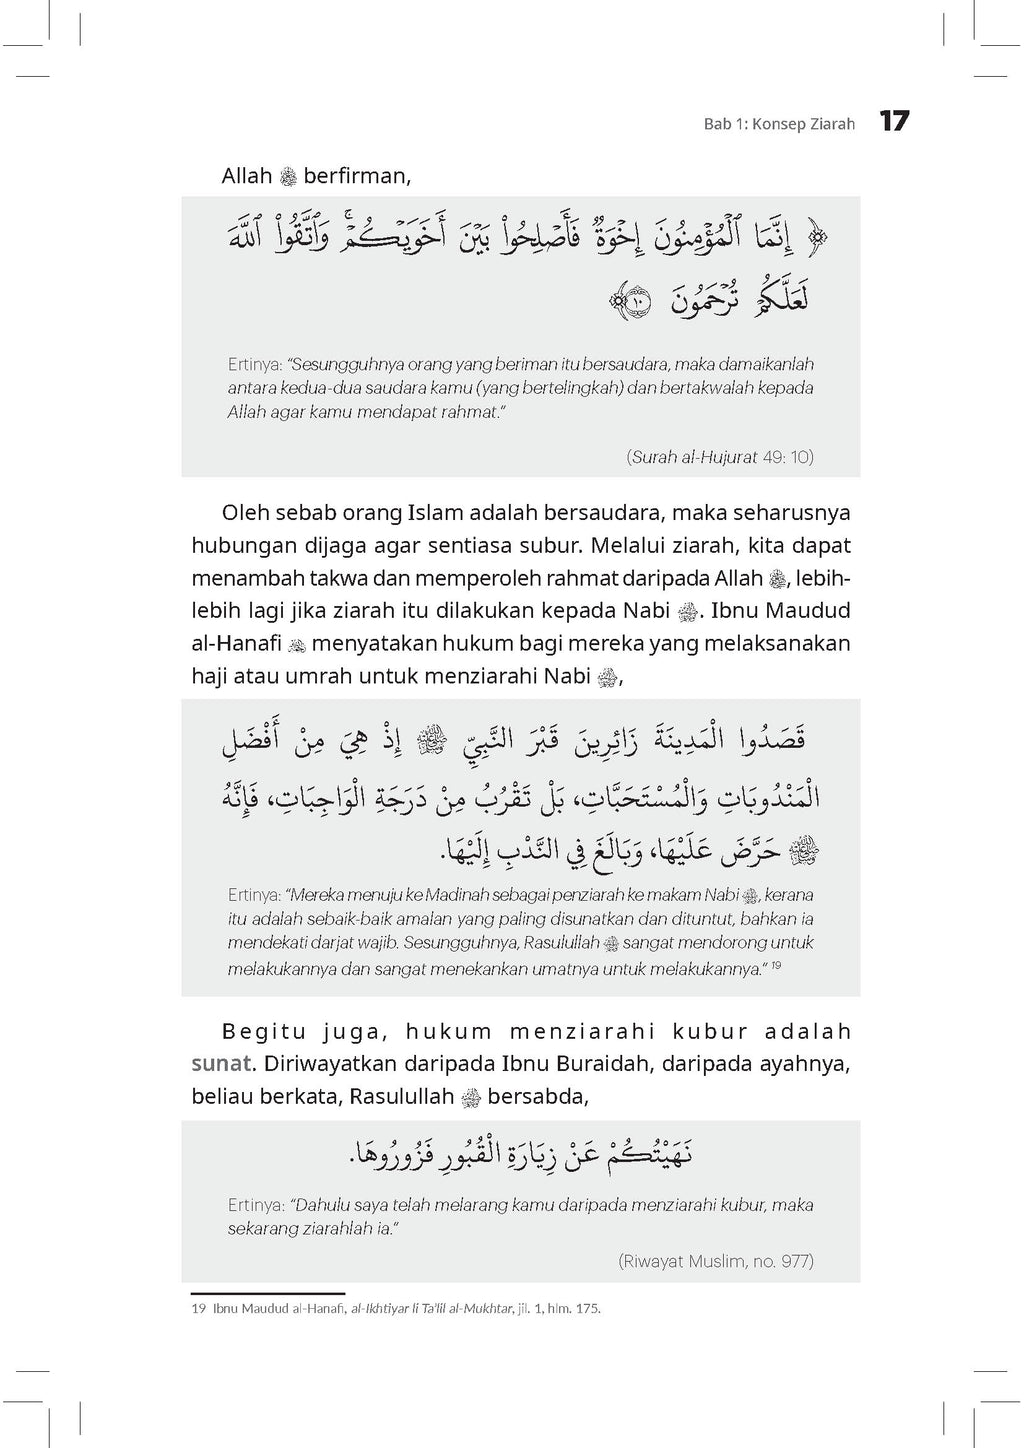 Bab 1: Konsep Ziarah 17
Allah ﷻ berfirman,
﴿ إِنَّمَا ٱلۡمُؤۡمِنُونَ إِخۡوَةٞ فَأَصۡلِحُواْ بَيۡنَ أَخَوَيۡكُمۡۚ وَٱتَّقُواْ ٱللَّهَ
لَعَلَّكُمۡ تُرۡحَمُونَ ١٠ ﴾
Ertinya: “Sesungguhnya orang yang beriman itu bersaudara, maka damaikanlah
antara kedua-dua saudara kamu (yang bertelingkah) dan bertakwalah kepada
Allah agar kamu mendapat rahmat.”
(Surah al-Hujurat 49: 10)
Oleh sebab orang Islam adalah bersaudara, maka seharusnya
hubungan dijaga agar sentiasa subur. Melalui ziarah, kita dapat
menambah takwa dan memperoleh rahmat daripada Allah ﷻ, lebih-
lebih lagi jika ziarah itu dilakukan kepada Nabi ﷺ. Ibnu Maudud
al-Hanafi menyatakan hukum bagi mereka yang melaksanakan
haji atau umrah untuk menziarahi Nabi ﷺ,
قَصَدُوا الْمَدِينَةَ زَائِرِينَ قَبْرَ النَّبِيِّ ﷺ إِذْ هِيَ مِنْ أَفْضَلِ
الْمَنْدُوبَاتِ وَالْمُسْتَحَبَّاتِ، بَلْ تَقْرُبُ مِنْ دَرَجَةِ الْوَاجِبَاتِ، فَإِنَّهُ
ﷺ حَرَّضَ عَلَيْهَا، وَبَالَغَ فِي النَّدْبِ إِلَيْهَا.
Ertinya: “Mereka menuju ke Madinah sebagai penziarah ke makam Nabi ﷺ, kerana
itu adalah sebaik-baik amalan yang paling disunatkan dan dituntut, bahkan ia
mendekati darjat wajib. Sesungguhnya, Rasulullah ﷺ sangat mendorong untuk
melakukannya dan sangat menekankan umatnya untuk melakukannya.” 19
Begitu juga, hukum menziarahi kubur adalah
sunat. Diriwayatkan daripada Ibnu Buraidah, daripada ayahnya,
beliau berkata, Rasulullah ﷺ bersabda,
نَهَيْتُكُمْ عَنْ زِيَارَةِ الْقُبُورِ فَزُورُوهَا.
Ertinya: “Dahulu saya telah melarang kamu daripada menziarahi kubur, maka
sekarang ziarahlah ia.”
(Riwayat Muslim, no. 977)
19 Ibnu Maudud al-Hanafi, al-Ikhtiyar li Ta’lil al-Mukhtar, jil. 1, hlm. 175.